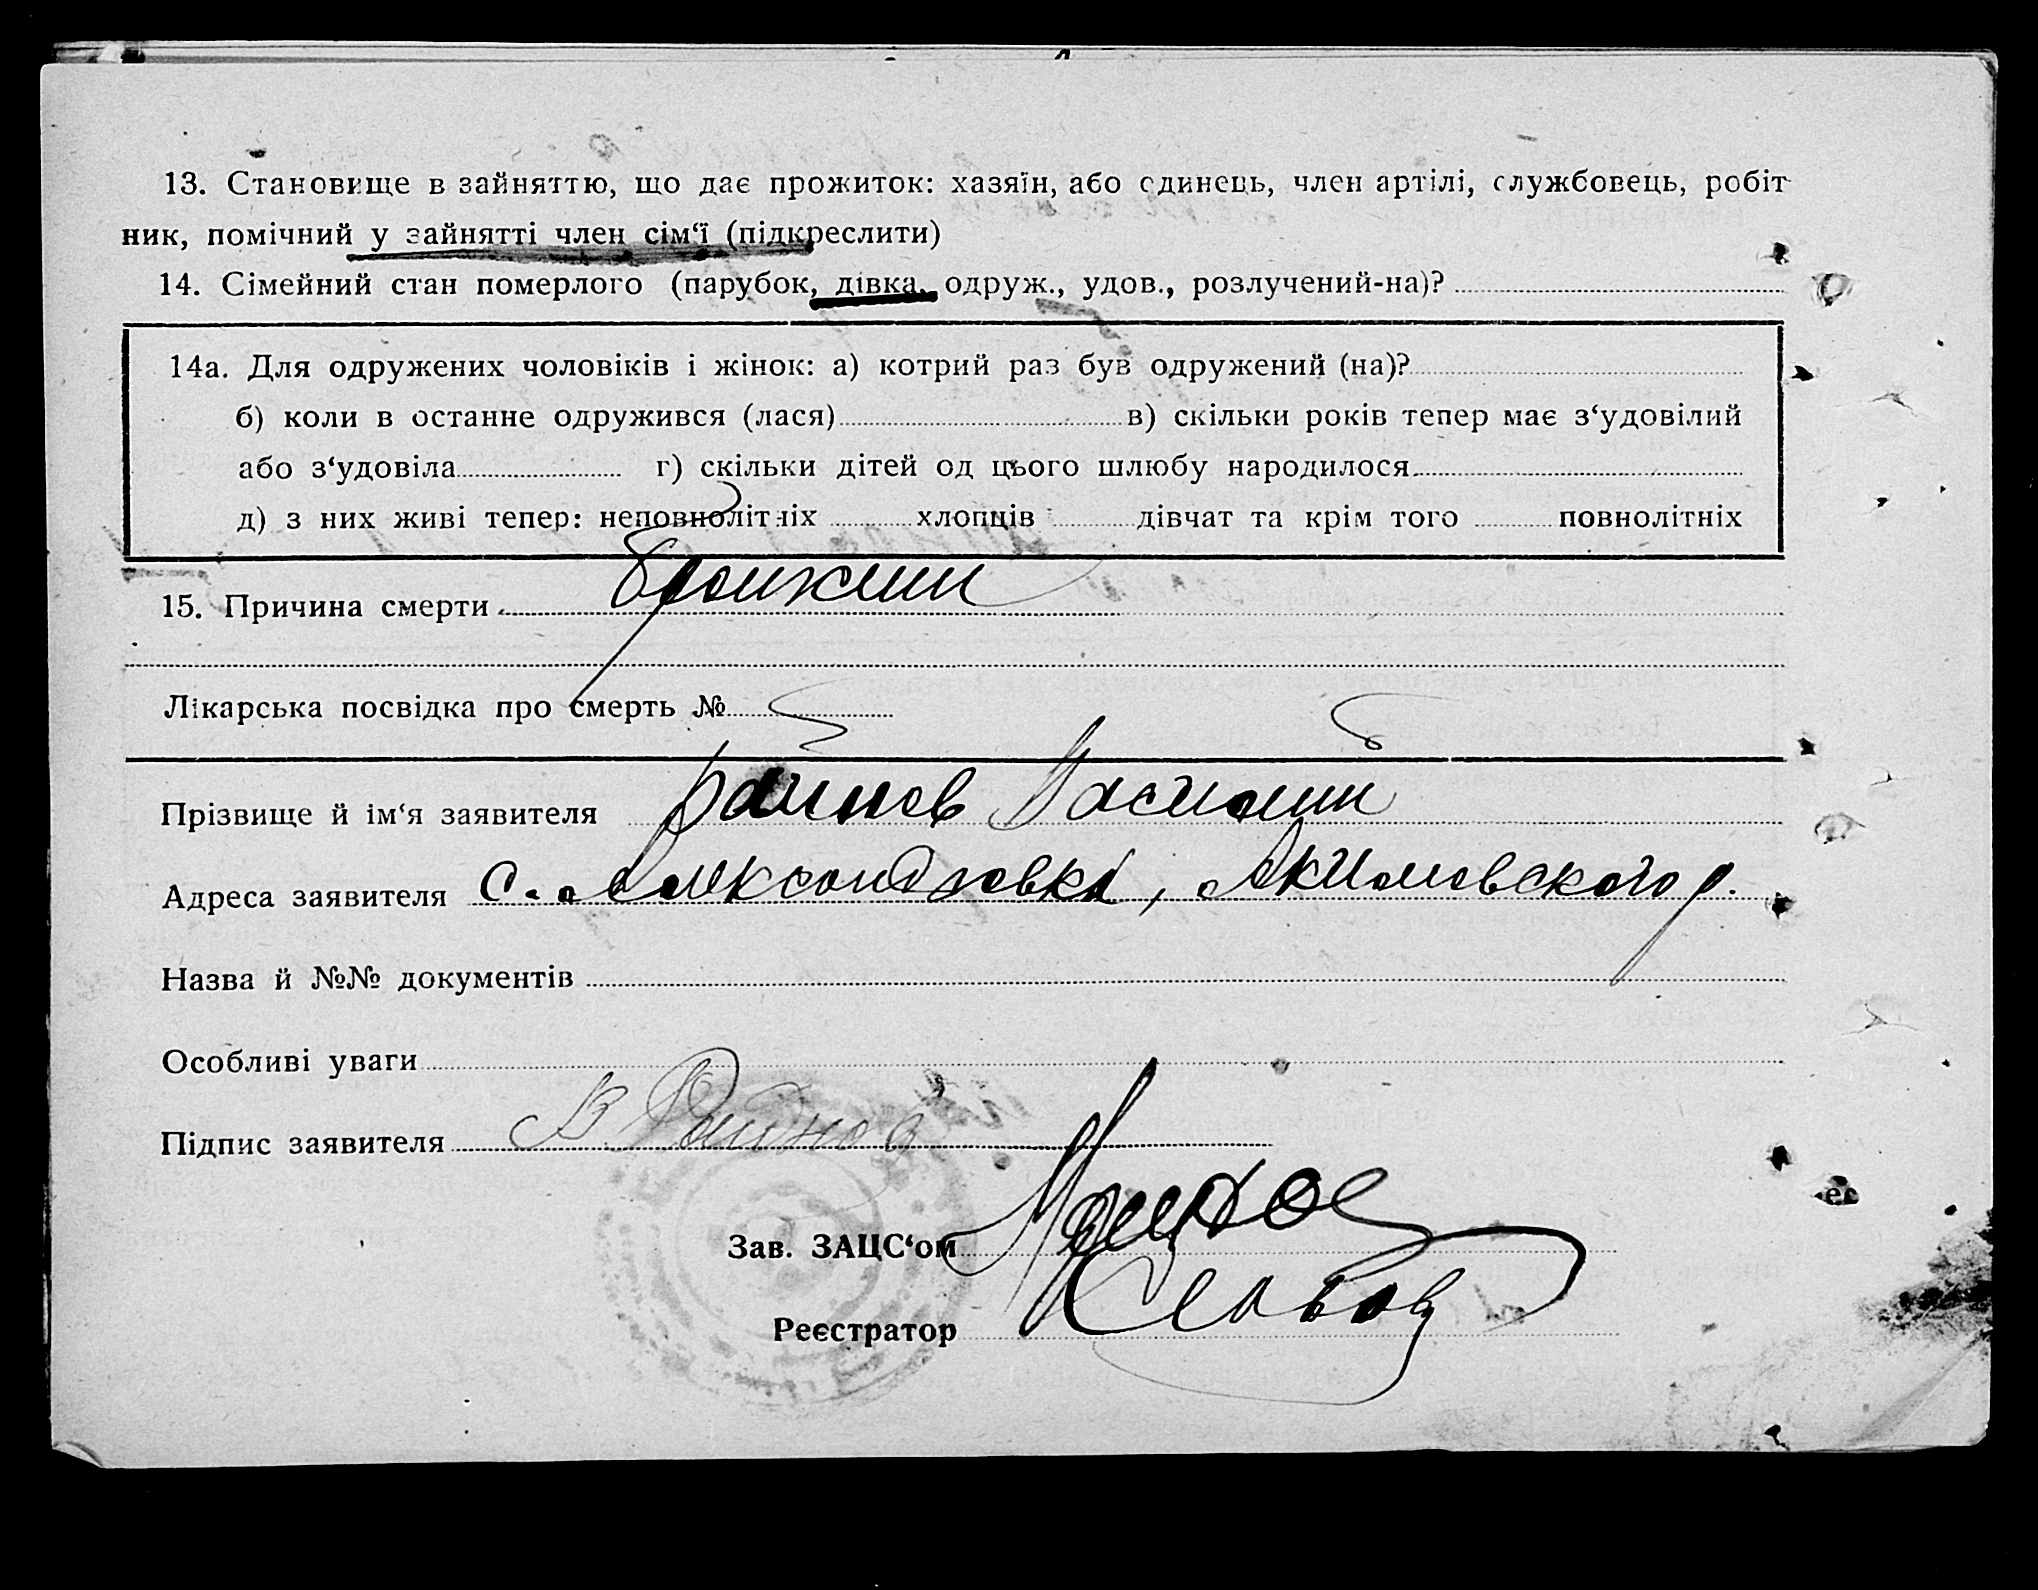 13. Становище в зайняттю, що дає прожиток: хазяїн, або єдинець, член артілі, службовець, робіт-
ник, помічний у зайнятті член сім‘ї (підкреслити)
14. Сімейний стан померлого (парубок, дівка, одруж., удов., розлучений-на)?
14а. Для одружених чоловіків і жінок: а) котрий раз був одружений (на)?
б) коли в останне одружився (лася) в) скільки років тепер має з‘удовілий
або з‘удовіла г) скільки дітей од цього шлюбу народилося
д) з них живі тепер: неповнолітніх хлопців дівчат та крім того повнолітніх
15. Причина смерти
Лікарська посвідка про смерть №
Прізвище й ім‘я заявителя Василий
Адреса заявителя с. Александровка, Акимовского р.
Назва й №№ документів
Особливі уваги
Підпис заявителя В
Зав. ЗАЦС‘ом
Реєстратор